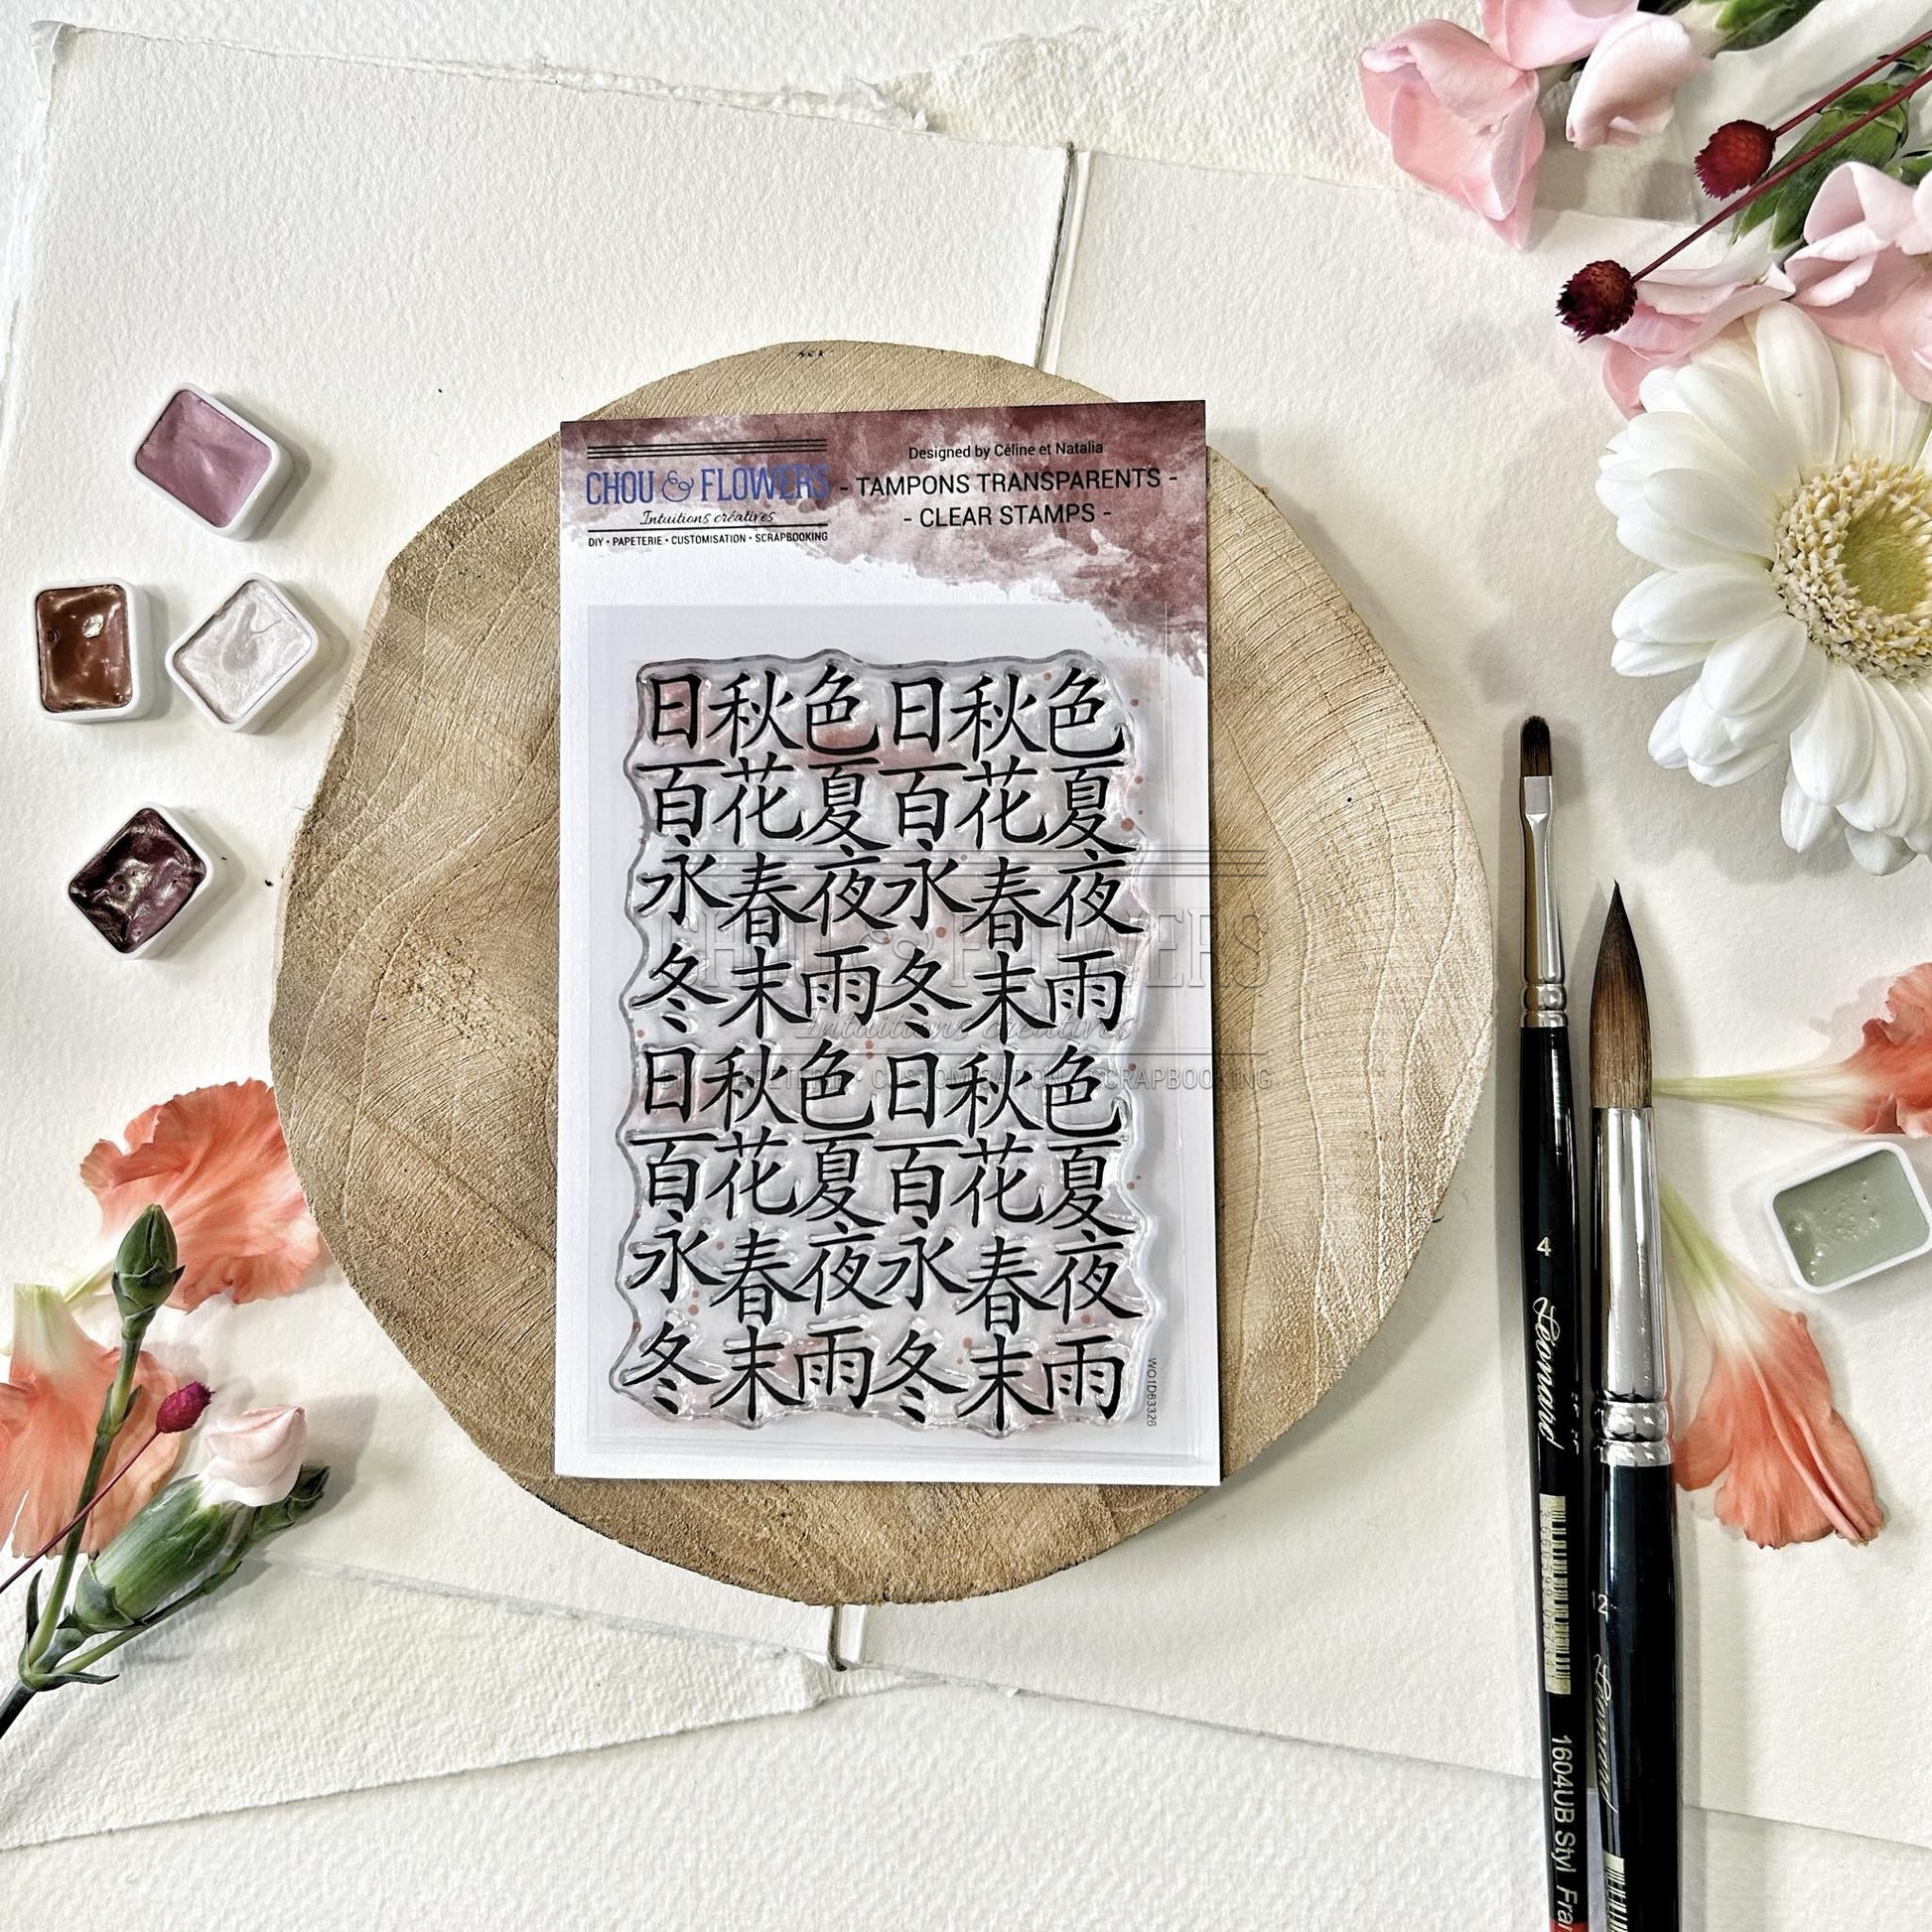 CHOU & FLOWERS
Intuitions créatives
DIY • PAPETERIE • CUSTOMISATION • SCRAPBOOKING
Designed by Céline et Natalia
- TAMPONS TRANSPARENTS -
- CLEAR STAMPS -
日秋色日秋色
百花夏百花夏
永春夜永春夜
冬末雨冬末雨
日秋色日秋色
百花夏百花夏
永春夜永春夜
冬末雨冬末雨
CHOU & FLOWERS
Intuitions créatives
DIY • PAPETERIE • CUSTOMISATION • SCRAPBOOKING
4
Léonard
1604UB Styl
12
Léonard